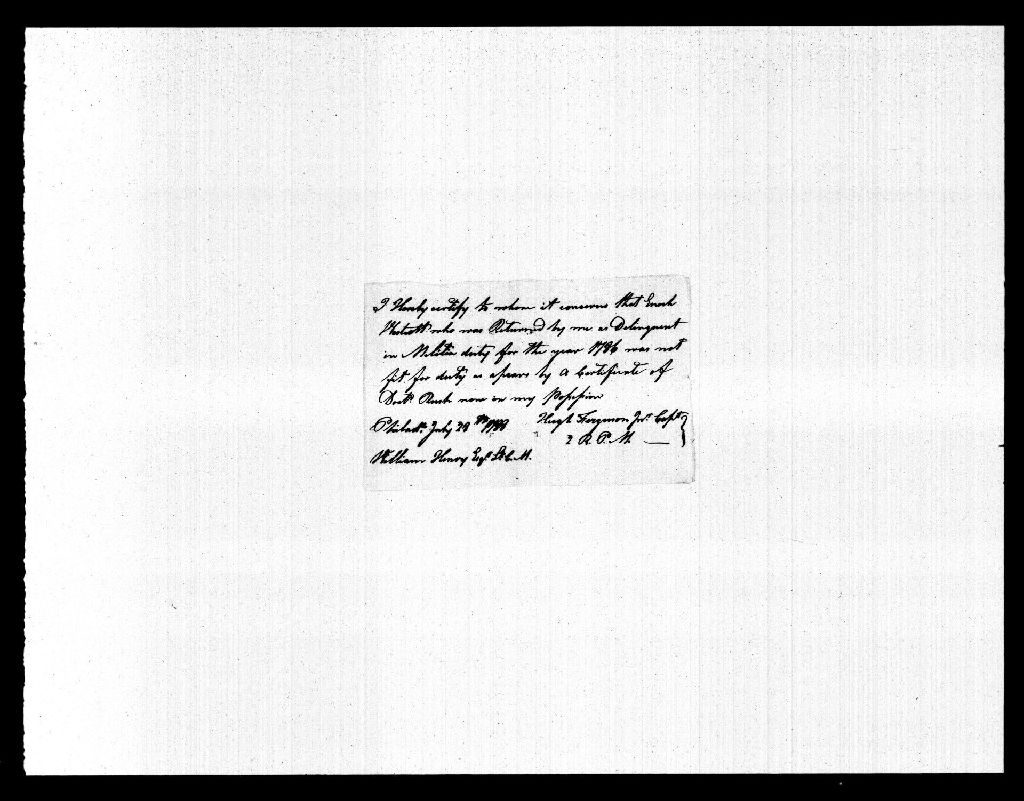 I Hereby certify to whom it concerns that Enoch
who was Returned by me as Delinquent
in Militia duty for the year 1786 was not
fit for duty as apears by a Certificate of
Doctr Rush now in my Possession
Philada July 28th 1788 Hugh Ferguson Jr. Capt
2 R. P. M.
William Henry Esqr Lt C. M.